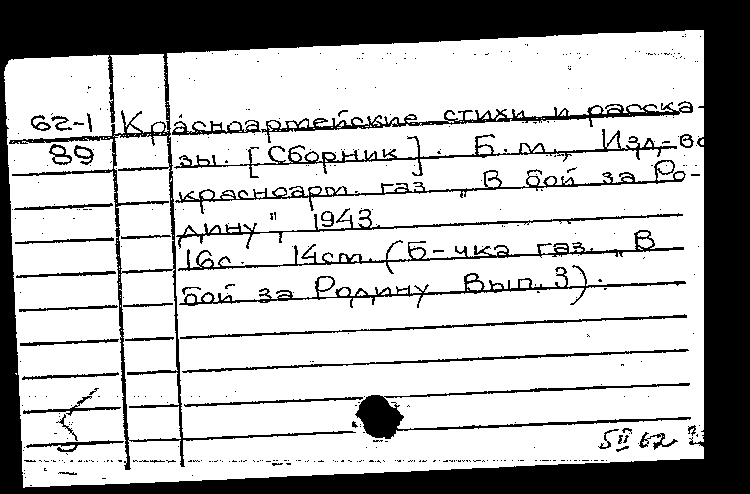 62-1 Красноармейские стихи и расска-
89 зы. [Сборник]. Б.м., Изд-во
красноарм. газ „В бой за Ро-
дину", 1943.
16с. 14см. (Б-чка газ. „В
бой за Родину Вып. 3).
5
5 II 62